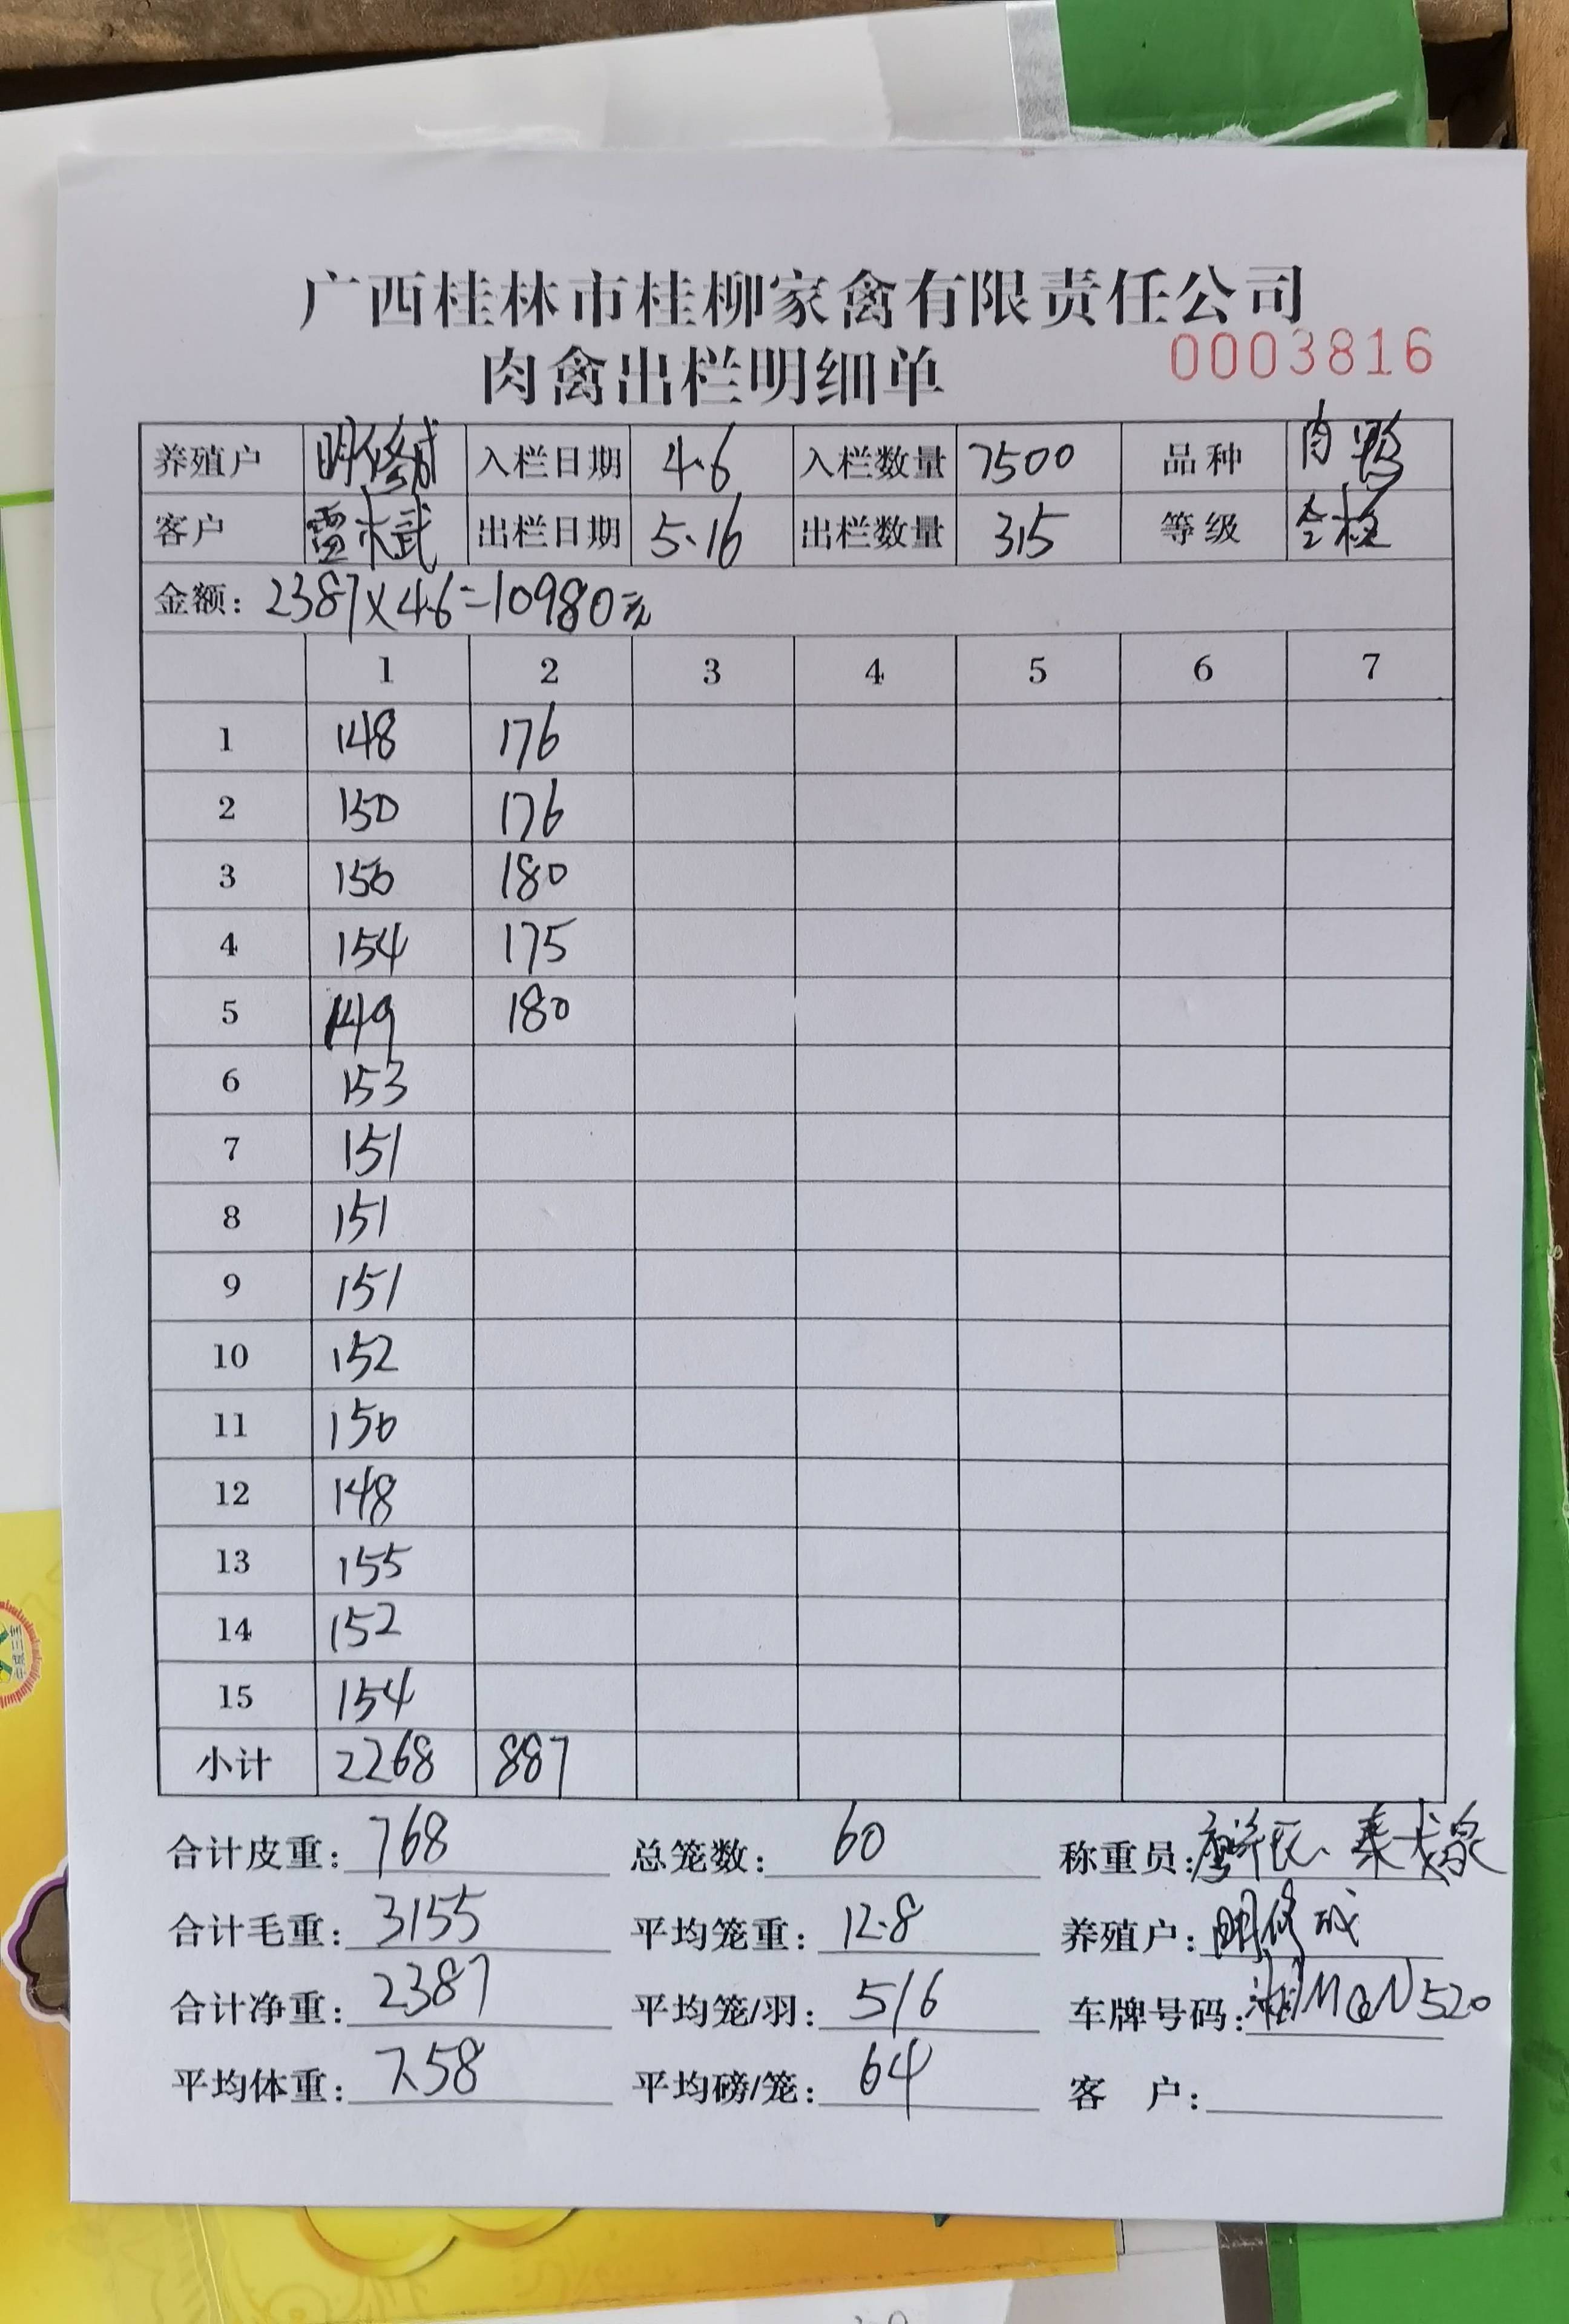 广西桂林市桂柳家禽有限责任公司
肉禽出栏明细单 0003816
养殖户 入栏日期 4.6 入栏数量 7500 品种 肉鸭
客户 出栏日期 5.16 出栏数量 315 等级
金额: 2387×4.6=10980元
1 2 3 4 5 6 7
1 148 176
2 150 176
3 150 180
4 154 175
5 149 180
6 153
7 151
8 151
9 151
10 152
11 150
12 148
13 155
14 152
15 154
小计 2268 887
合计皮重: 768 总笼数: 60 称重员:
合计毛重: 3155 平均笼重: 12.8 养殖户: 明修成
合计净重: 2387 平均笼/羽: 5/6 车牌号码: 湘MQN520
平均体重: 7.58 平均磅/笼: 64 客 户: